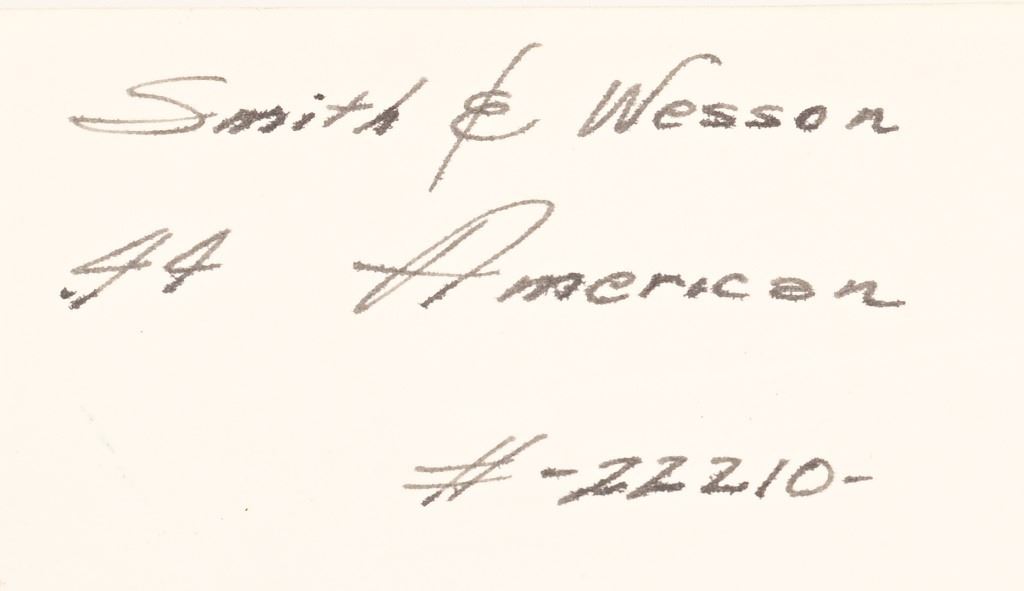 Smith & Wesson
.44 American
# -22210-